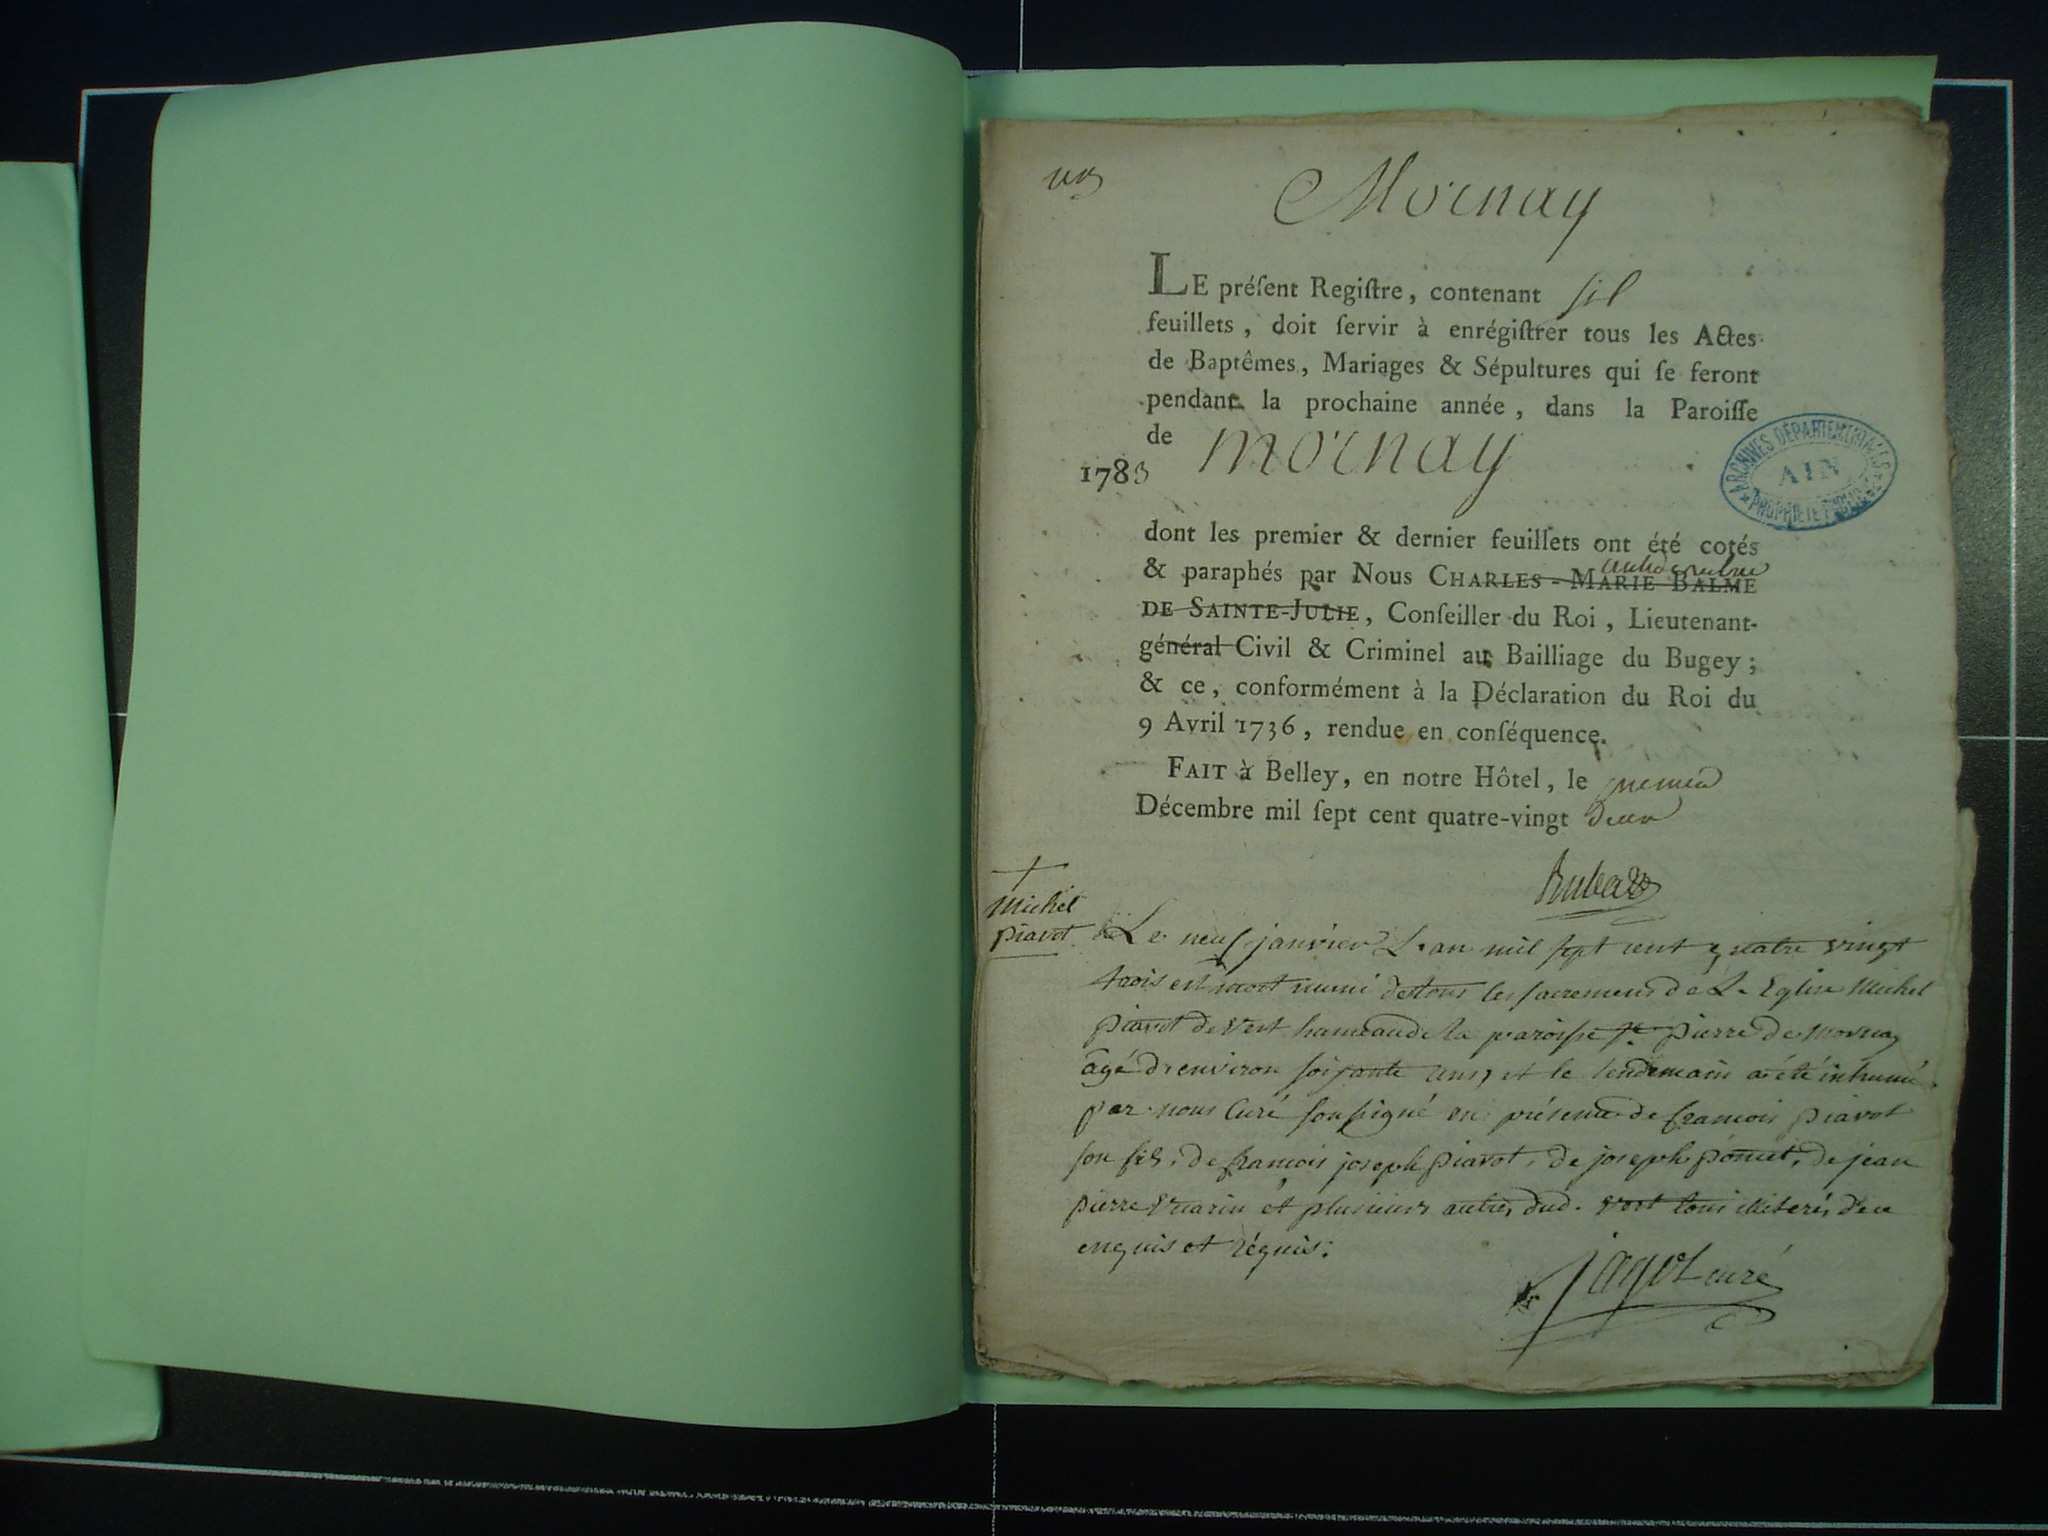 Mornay
LE préſent Regiſtre, contenant six
feuillets, doit ſervir à enrégiſtrer tous les Actes
de Baptêmes, Mariages & Sépultures qui ſe feront
pendant la prochaine année, dans la Paroiſſe
de mornay
1783
ARCHIVES DÉPARTEMENTALES
AIN
PROPRIÉTÉ PUBLIQUE
dont les premier & dernier feuillets ont été cotés
& paraphés par Nous CHARLES-MARIE BALME
DE SAINTE-JULIE, Conſeiller du Roi, Lieutenant-
général Civil & Criminel au Bailliage du Bugey;
& ce, conformément à la Déclaration du Roi du
9 Avril 1736, rendue en conſéquence.
FAIT à Belley, en notre Hôtel, le premier
Décembre mil ſept cent quatre-vingt deux
Michel
piavot
Le neuf janvier L'an mil sept cent quatre vingt
trois est mort muni de tous les sacremens de L'Eglise Michel
piavot de Vert hameau de la paroisse st pierre de mornay
agé d'environ soixante ans, et le lendemain a été inhumé
par nous Curé soussigné en présence de francois piavot
son fils, de francois joseph piavot, de joseph poncet, de jean
pierre et plusieurs autres dud. Vert tous illiterés de ce
enquis et réquis.
jagot curé